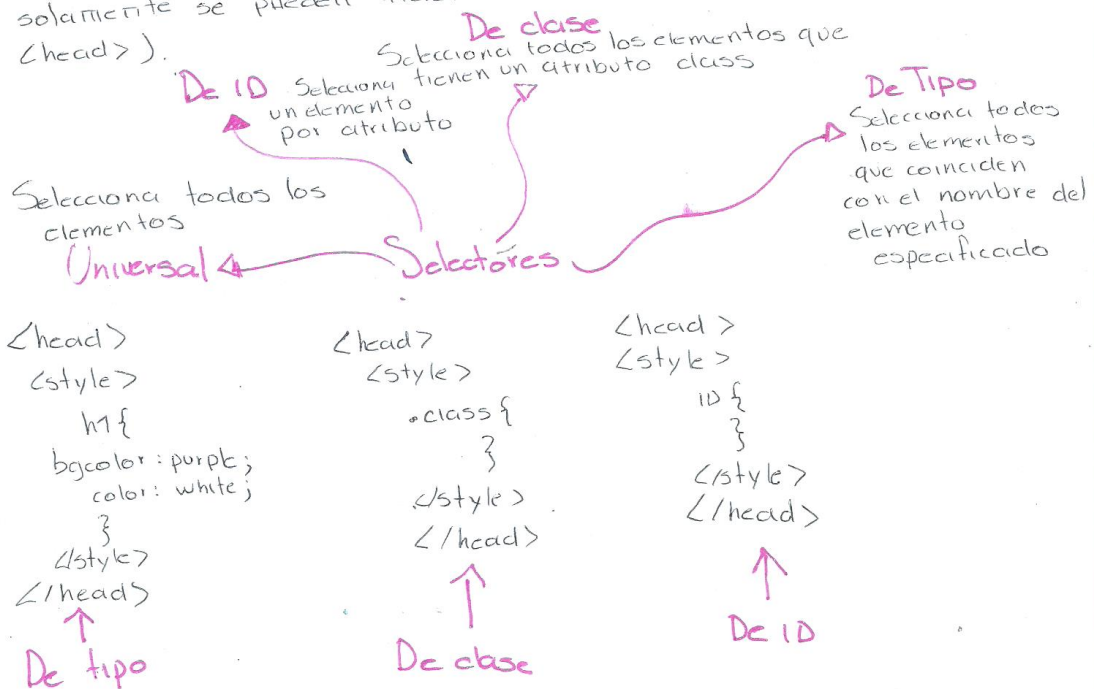 solamente se pueden
<head>).
De clase
Selecciona todos los elementos que
tienen un atributo class
De ID
Selecciona
un elemento
por atributo
De Tipo
Selecciona todos
los elementos
que coinciden
con el nombre del
elemento
especificado
Selecciona todos los
elementos
Universal
Selectores
<head>
<style>
h1{
bgcolor: purple;
color: white;
}
</style>
</head>
De tipo
<head>
<style>
.class{
}
</style>
</head>
De clase
<head>
<style>
ID{
}
</style>
</head>
De ID